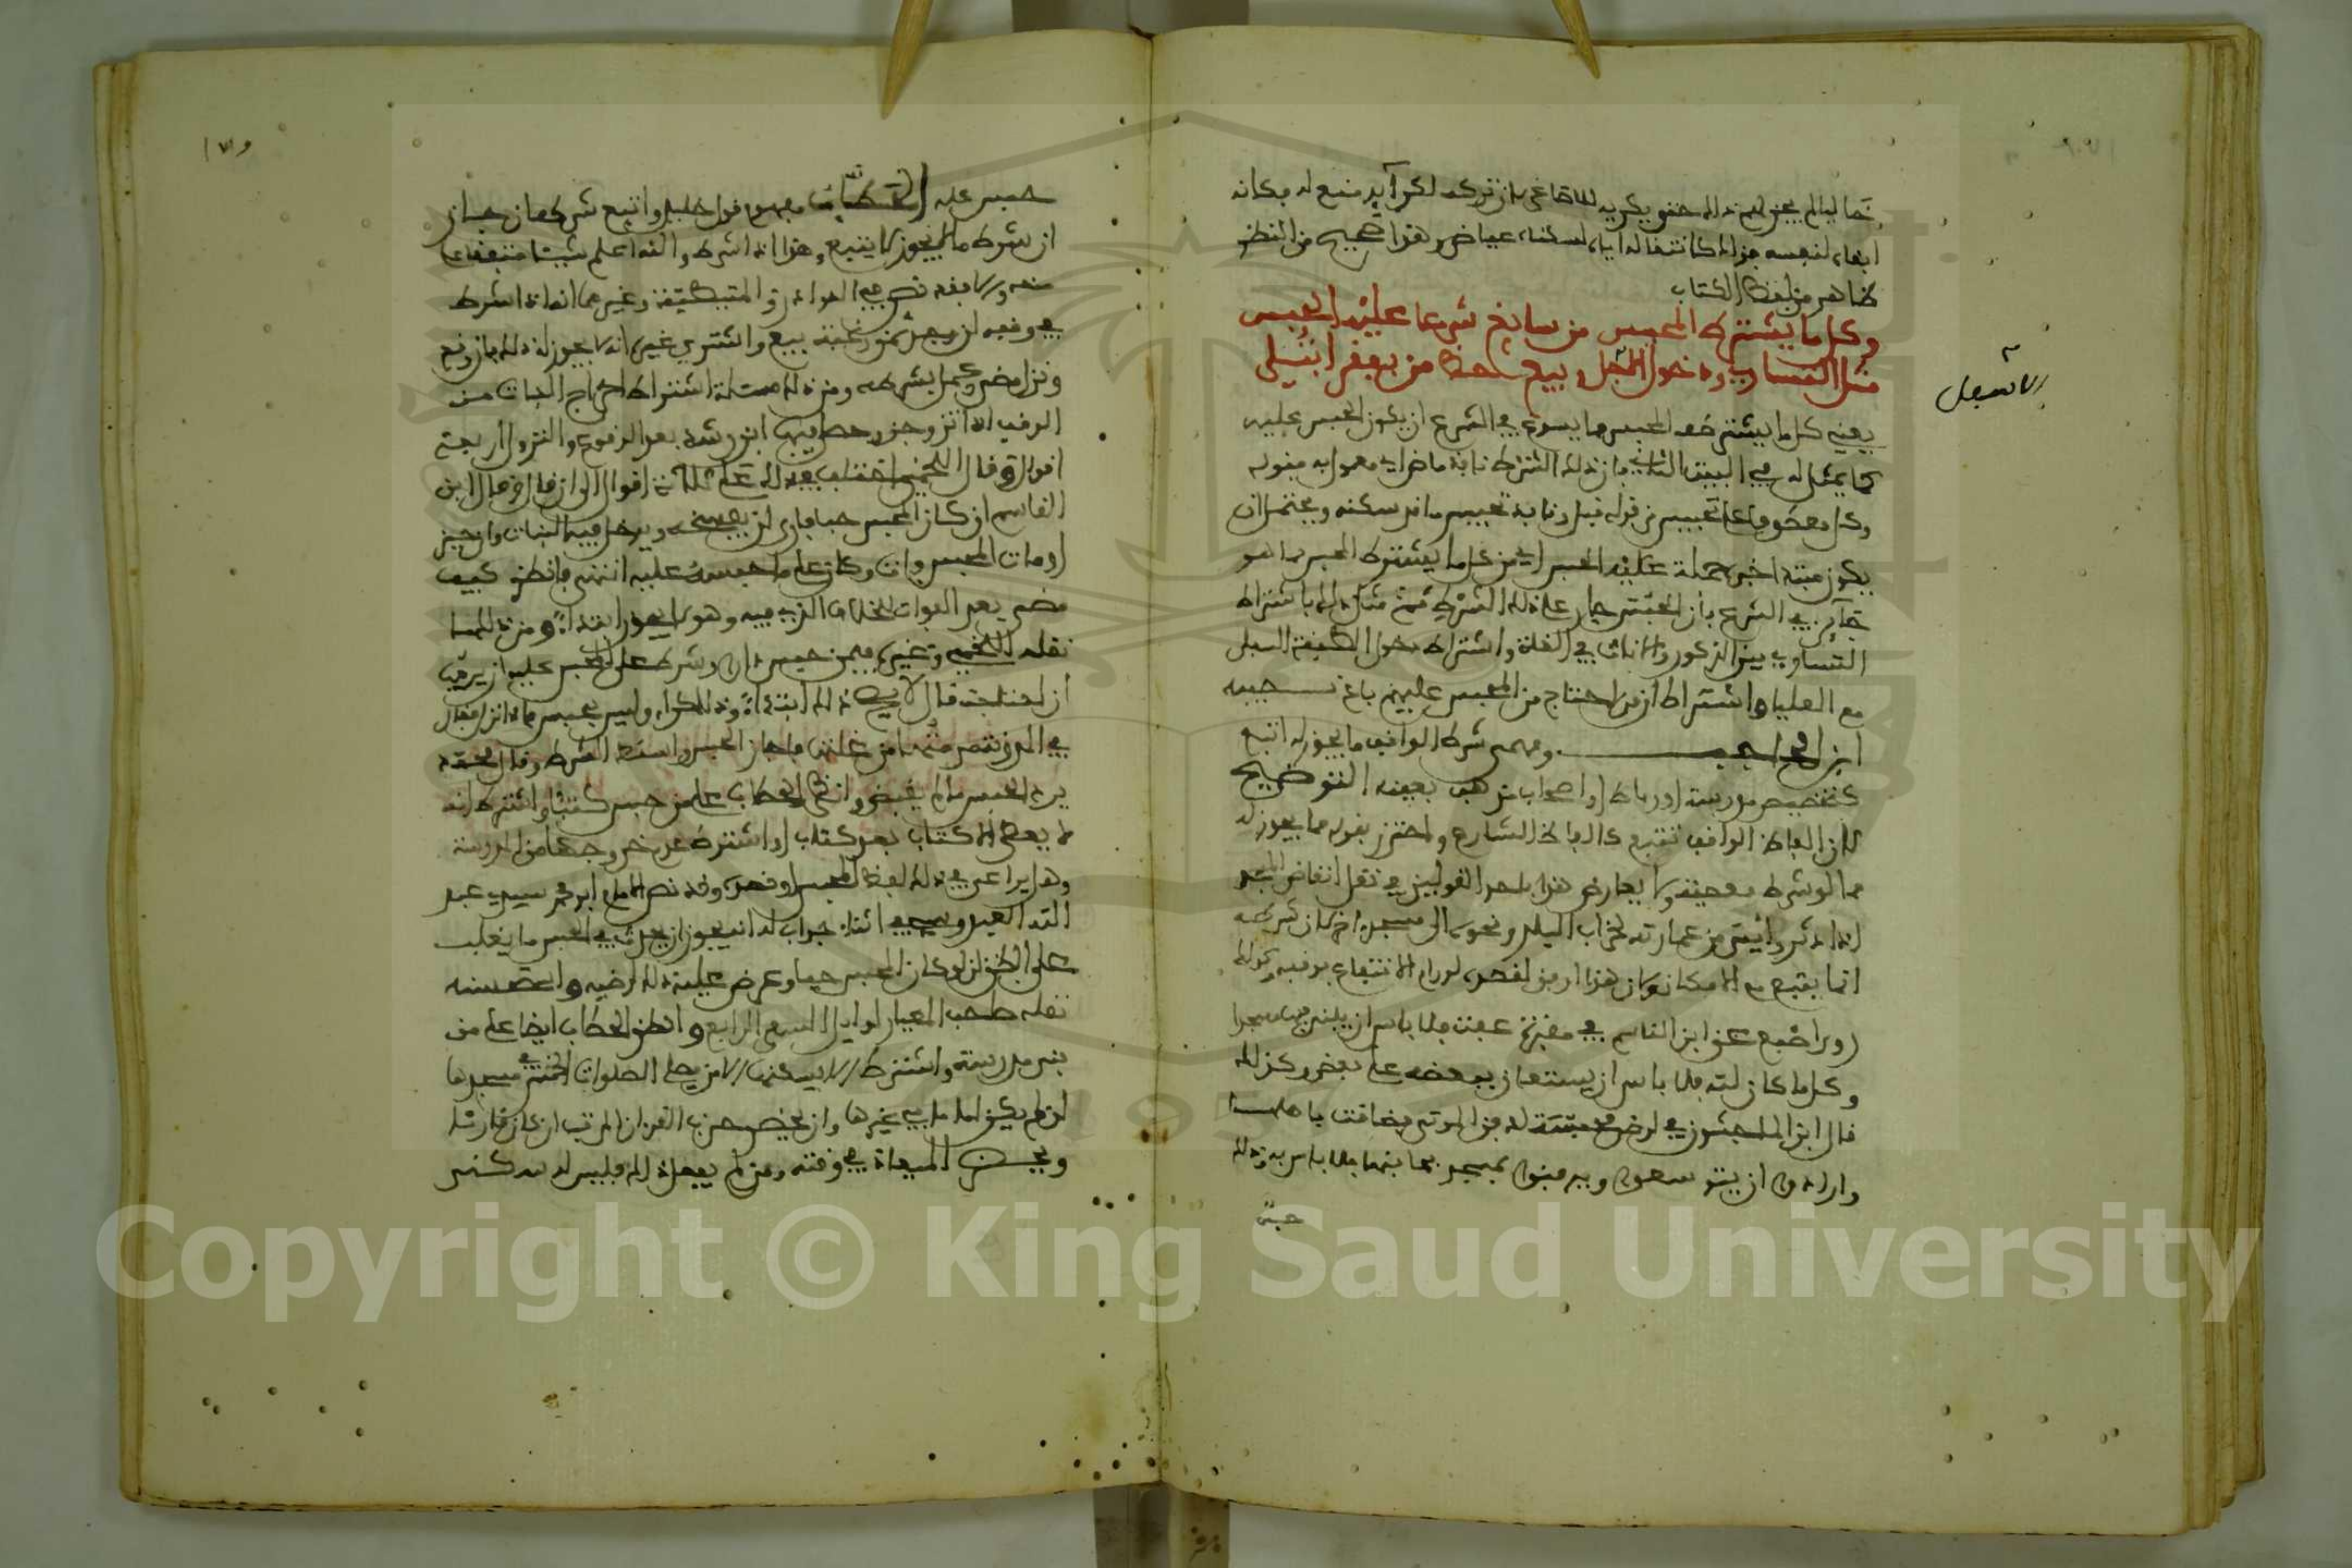 ابقاه لنفسه جزاء كانتفاله اياه لسكناه عياض وهذا صحيح من النظر
ظاهر من لفظ الكتاب
وكل ما يشترط المحبس من سايغ شرعا عليه الحبس
مثل التساوي ودخول الاسفل وبيع حظ من بفقر ابتلي
الاسفل
يعني كل ما يشترطه المحبس مما يسوغ في الشرع ان يكون الحبس عليه
كما يمثل له في البيت الثاني فان ذلك الشرط نافذ ماض اي معمول به فقوله
وكل معطوف على تحبيس من قوله قبل ونافذ تحبيس ما قد سكنه ويحتمل ان
يكون مبتدا خبره جملة عليه الحبس اي من كل ما يشترط المحبس مما هو
جائز في الشرع فان الحبس جار على ذلك الشرط فمن مثل ذلك باشتراط
التساوي بين الذكور والاناث في الغلة واشتراط دخول الطبقة السفلى
مع العليا واشتراط ان من احتاج من المحبس عليهم باع نصيبه
ابن الحاجب ومهما شرط الواقف ما يجوز له اتبع
كتخصيص مدرسة او رباط او اصحاب مذهب بعينه التوضيح
لان الفاظ الواقف تتبع كالفاظ الشارع واحترز بقوله مما يجوز له
مما لو شرط معصية ولا يعارض هذا باحد القولين في نقل انقاض المسجد
اذا دثر وائيس من عمارته لخراب البلد ونحوه الى مسجد اخر لان شرطه
انما يتبع مع الامكان ولان هذا ارفق لقصده لدوام الانتفاع بوقفه وكذلك
روى اصبغ عن ابن القاسم في مقبرة عفت فلا باس ان يبنى فيها مسجدا
وكل ما كان لله فلا باس ان يستعان ببعضه على بعض وكذلك
قال ابن الماجشون في ارض محبسة لدفن الموتى فضاقت باهلها
وارادوا ان يتوسعوا ويدفنوا بمسجد بجانبها فلا باس به وذلك
حبس
حبس كله الحطاب مفهوم قول خليل واتبع شرطه ان جاز
ان شرط ما لا يجوز لا يتبع وهذا اذا شرط والله اعلم شيئا متفقا على
منعه ولا فقد نص في النوادر والمتيطية وغيرهما انه اذا اشترط
في وقفه ان وجد ثمن رغبة بيع واشتري غيره انه لا يجوز له ذلك فان وقع
ونزل مضى وعمل بشرطه ومن ذلك مسئلة اشتراط اخراج البنات من
الوقف اذا تزوجن ابن رشد بعد الوقوع والنزول اربعة
اقوال وقال اللخمي اختلف في ذلك على ثلاثة اقوال الى ان قال وقال ابن
القاسم ان كان المحبس حيا فارى ان يفسخه ويدخل فيه البنات وان حيز
او مات المحبس فات وكان على ما حبسه عليه انتهى فانظر كيف
مضى بعد الفوات للخلاف الذي فيه وهو لا يجوز ابتداء ومن ذلك ما
نقله اللخمي وغيره فيمن حبس دارا وشرط على المحبس عليه ان يرمها
ان احتاجت قال لا يصح ذلك ابتداء وذلك كراء وليس بحبس فان نزل فقال
في المدونة مرمتها من غلتها فاجاز الحبس واسقط الشرط وقال محمد
يرد الحبس ما لم يقبض وانظر الحطاب على من حبس كتبا واشترط انه
لا يعطى الا كتاب بعد كتاب او اشترط عدم خروجها من المدرسة
وهل يراعى في ذلك لفظ المحبس او قصده وقد نص الامام ابو محمد سيدي عبد
الله العبدوسي في اثناء جواب له انه يجوز ان يحدث في الحبس ما يغلب
على الظن ان لو كان المحبس حيا وعرض عليه ذلك لرضيه واستحسنه
نقله صاحب المعيار اوايل السفر الرابع وانظر الحطاب ايضا على من
بنى مدرسة واشترط ان لا يسكنها الا من يصلي الصلوات الخمس في مسجدها
ان لم يكن اماما في غيرها وان يحضر حزب القرءان المرتب ان كان قارئا
ويحسن الميعاد في وقته ومن لم يفعل ذلك فليس له سكنى